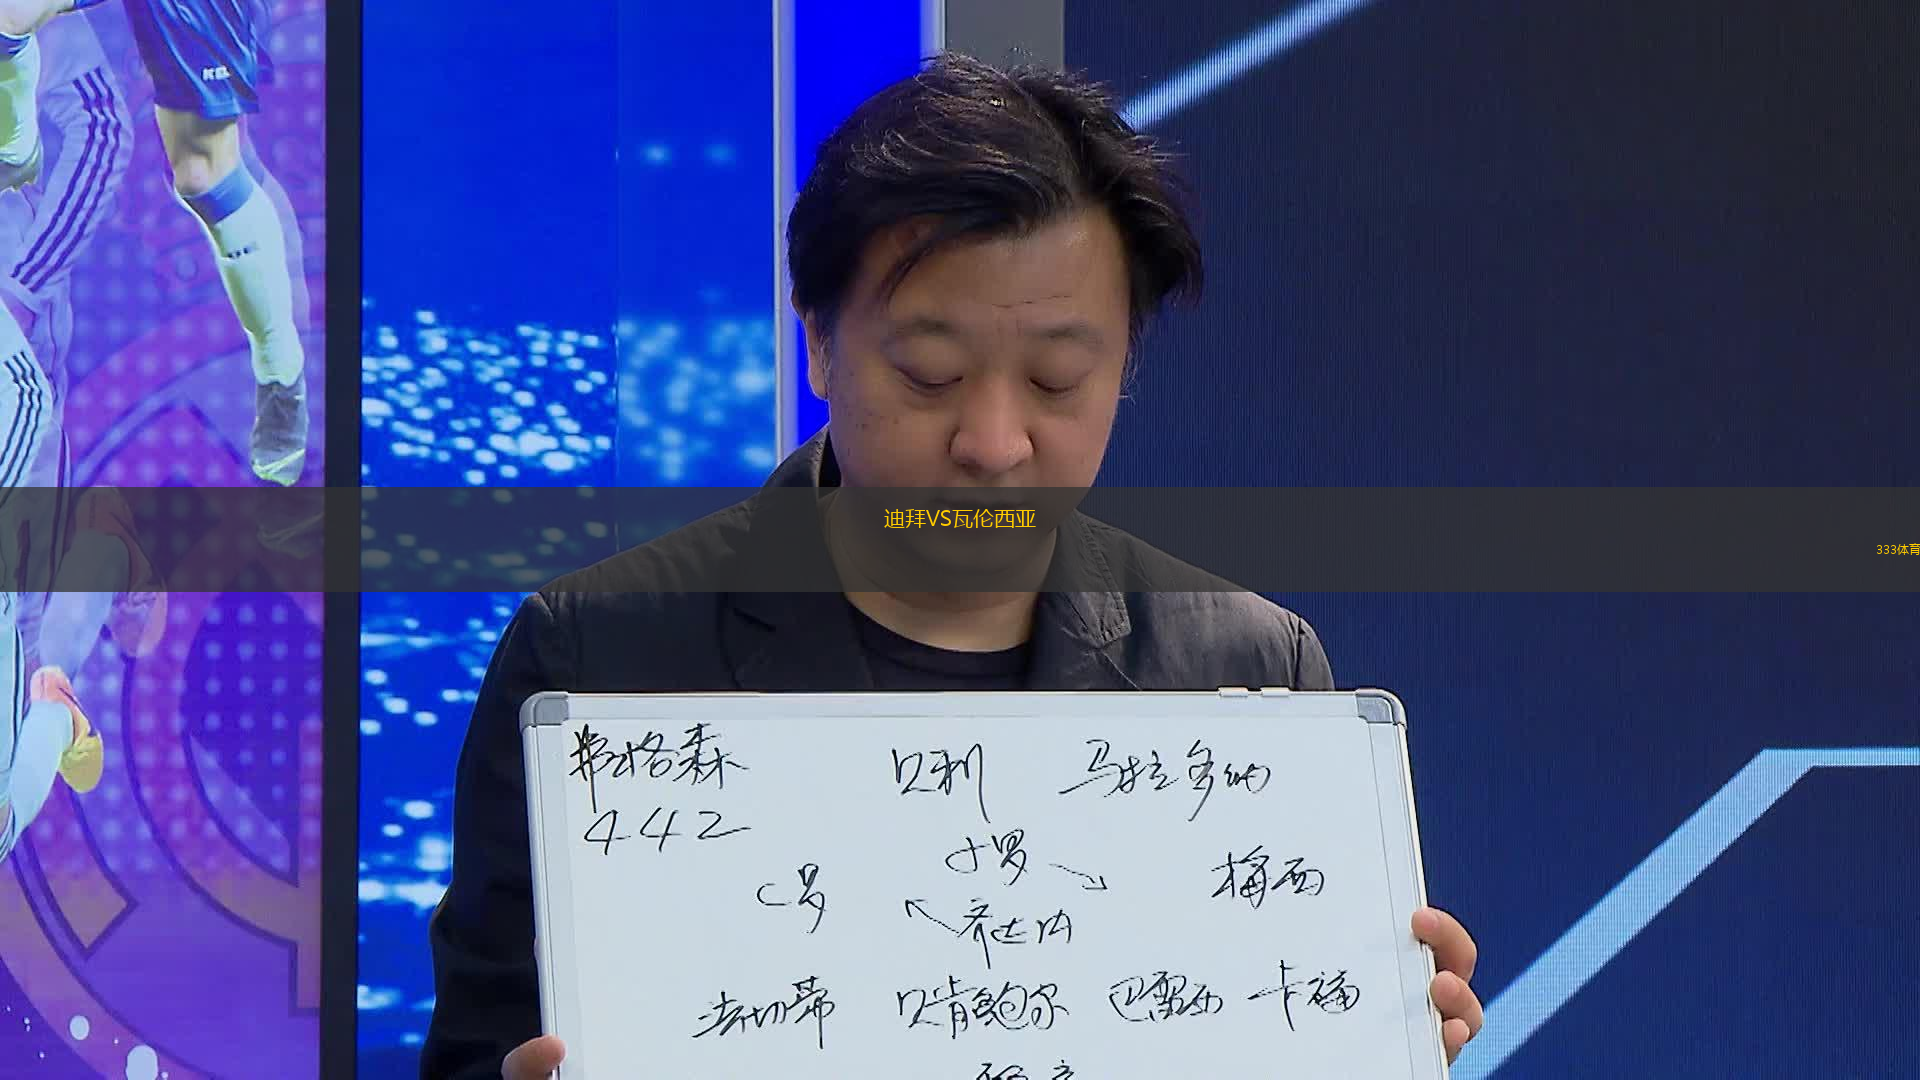 KEL
迪拜VS瓦伦西亚
333体育
弗格森 贝利 马拉多纳
442
小罗
C罗 梅西
齐达内
法切蒂 贝肯鲍尔 巴雷西 卡福